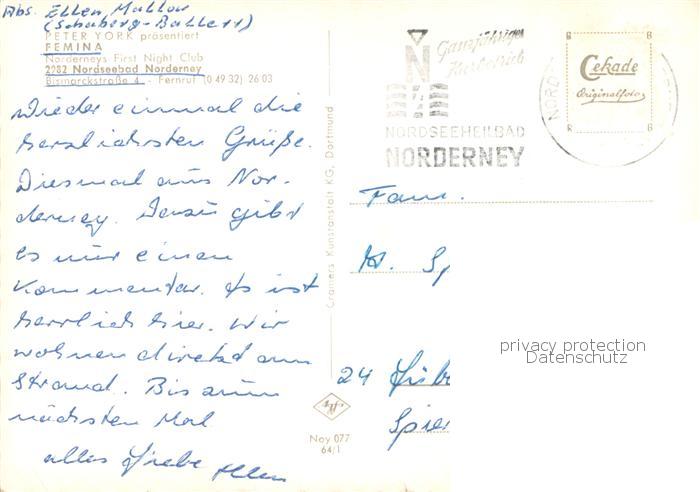 Abs. Ellen Mallow
(Schaberg-Ballett)
PETER YORK präsentiert
FEMINA
Norderneys First Night Club
2982 Nordseebad Norderney
Bismarckstraße 4 - Fernruf (0 49 32) 26 03
Wieder einmal die
herzlichsten Grüße.
Diesmal aus Nor-
derney. Dazu gibt
es nur einen
Kommentar. Es ist
herrlich hier. Wir
wohnen direkt am
Strand. Bis zum
nächsten Mal
alles Liebe Ellen
Cramers Kunstanstalt KG, Dortmund
Noy 077
64/1
Ganzjähriger
Kurbetrieb
N
NORDSEEHEILBAD
NORDERNEY
NORD
Cekade
Originalfoto
Fam.
24 Lübe
privacy protection
Datenschutz